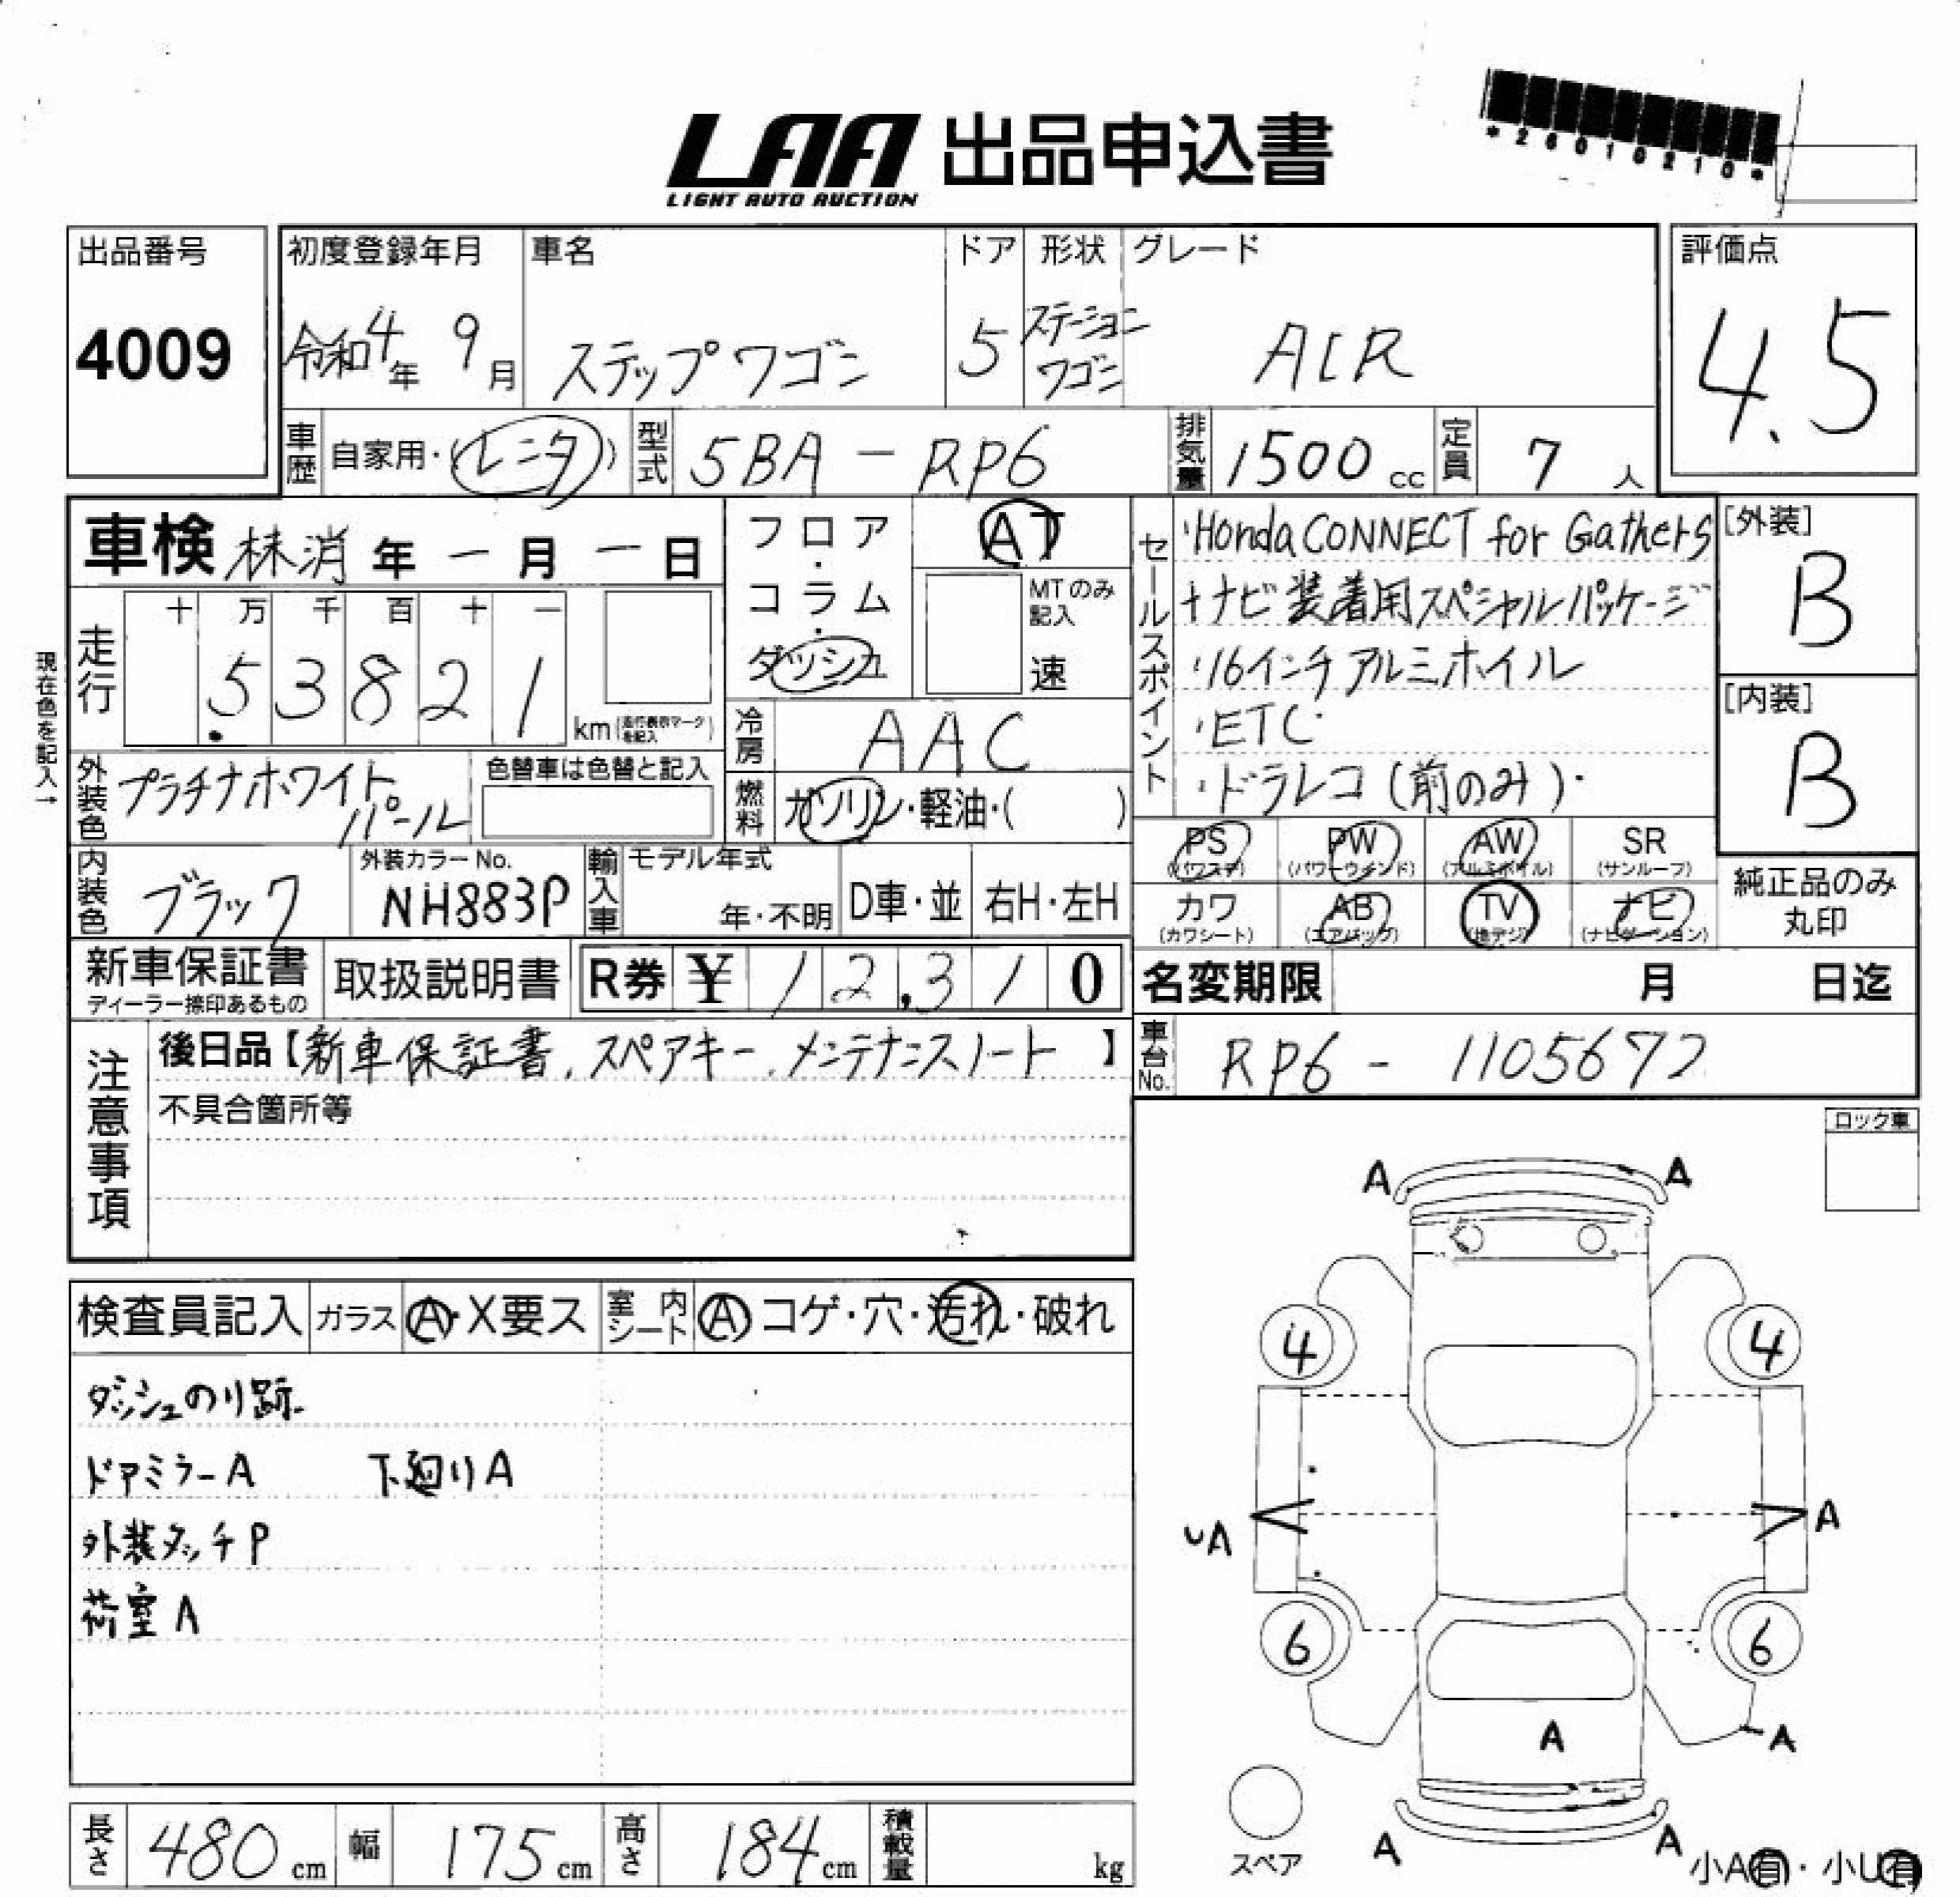 LAA 出品申込書
LIGHT AUTO AUCTION
*26010210*
出品番号
4009
初度登録年月
令和4年 9月
車名
ステップワゴン
ドア
5
形状
ステーション
ワゴン
グレード
AIR
評価点
4.5
車歴 自家用・(レンタ)
型式 5BA - RP6
排気量 1500 cc
定員 7 人
車検 抹消 年 - 月 - 日
フロア・コラム・ダッシュ
AT
MTのみ記入
速
現在色を記入→
走行
十 万 千 百 十 一
53821
km(走行表示マークを記入)
冷房 AAC
燃料 ガソリン・軽油・( )
外装色 プラチナホワイト
パール
色替車は色替と記入
内装色 ブラック
外装カラーNo.
NH883P
輸入車
モデル年式
年・不明
D車・並
右H・左H
セールスポイント
・Honda CONNECT for Gathers
+ナビ装着用スペシャルパッケージ
・16インチアルミホイル
・ETC・
・ドラレコ(前のみ)・
[外装]
B
[内装]
B
PS
(パワステ)
PW
(パワーウインド)
AW
(アルミホイル)
SR
(サンルーフ)
カワ
(カワシート)
AB
(エアバッグ)
TV
(地デジ)
ナビ
(ナビゲーション)
純正品のみ
丸印
新車保証書
ディーラー捺印あるもの
取扱説明書
R券 ¥ 12,310
名変期限 月 日迄
車台No. RP6 - 1105672
注意事項
後日品【新車保証書、スペアキー、メンテナンスノート】
不具合箇所等
ロック車
検査員記入
ガラス Ⓐ・X要ス
室内シート Ⓐ コゲ・穴・汚れ・破れ
ダッシュのり跡
ドアミラーA 下廻りA
外装タッチP
荷室A
A A
4 4
UA A
6 6
A A
A A
スペア
小A有・小U有
長さ 480 cm
幅 175 cm
高さ 184 cm
積載量 kg